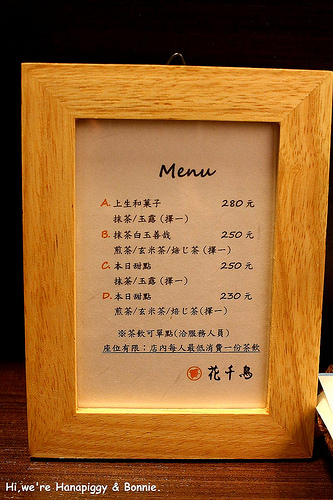 Menu
A. 上生和菓子 280元
抹茶/玉露 (擇一)
B. 抹茶白玉善哉 250元
煎茶/玄米茶/焙じ茶 (擇一)
C. 本日甜點 250元
抹茶/玉露 (擇一)
D. 本日甜點 230元
煎茶/玄米茶/焙じ茶(擇一)
※茶飲可單點(洽服務人員)
座位有限：店內每人最低消費一份茶飲
花千鳥
Hi,we're Hanapiggy & Bonnie.